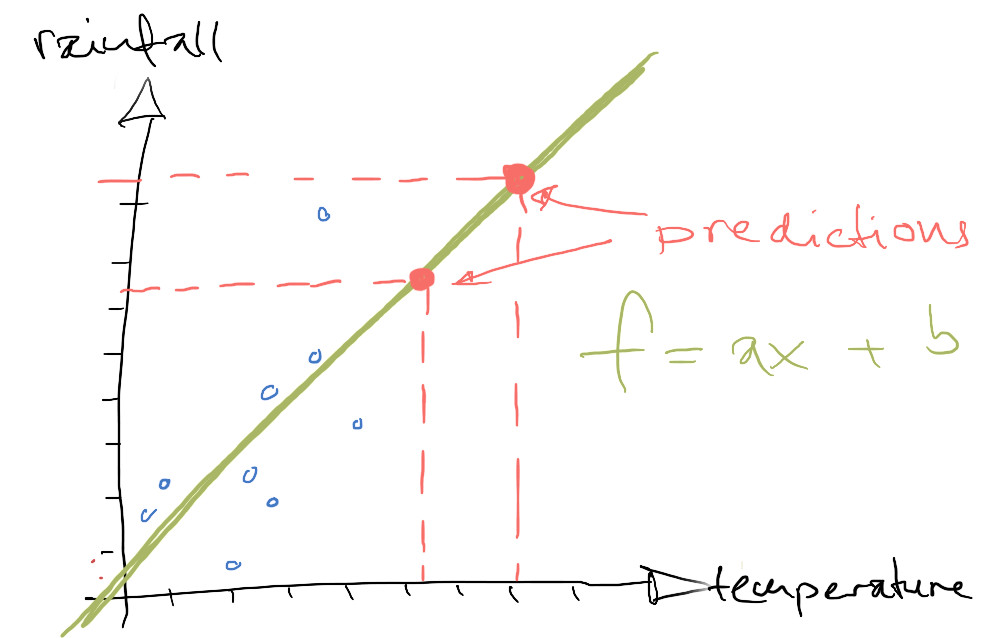 rainfall
predictions
f = ax + b
temperature